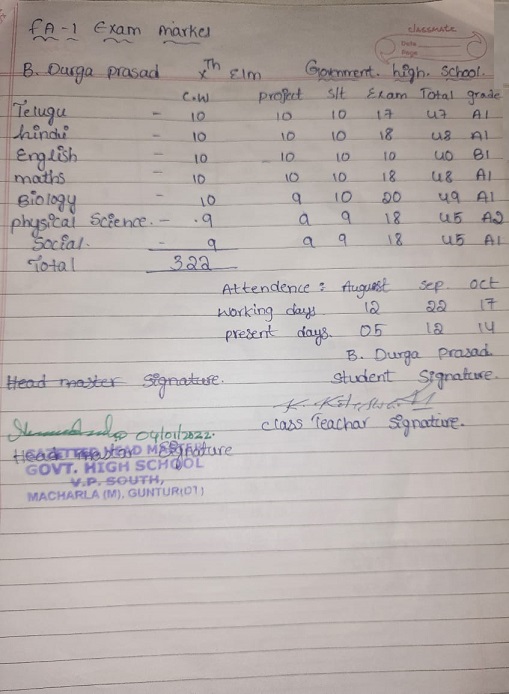 FA-1 Exam markes
classmate
Date
Page
B. Durga prasad Xth E/m Government. high. school.
C.W project slt Exam Total grade
Telugu - 10 10 10 17 47 A1
hindi - 10 10 10 18 48 A1
English - 10 10 10 10 40 B1
maths - 10 10 10 18 48 A1
Biology - 10 9 10 20 49 A1
physical Science. - 9 9 9 18 45 A2
Social. - 9 9 9 18 45 A1
Total 322
Attendence : August sep oct
working days 12 22 17
present days. 05 12 14
B. Durga Prasad
Head master Signature. Student Signature.
04/01/2022. class Teachar Signature.
Head master Signature
HEAD MASTER
GOVT. HIGH SCHOOL
V.P. SOUTH,
MACHARLA (M), GUNTUR(DT)